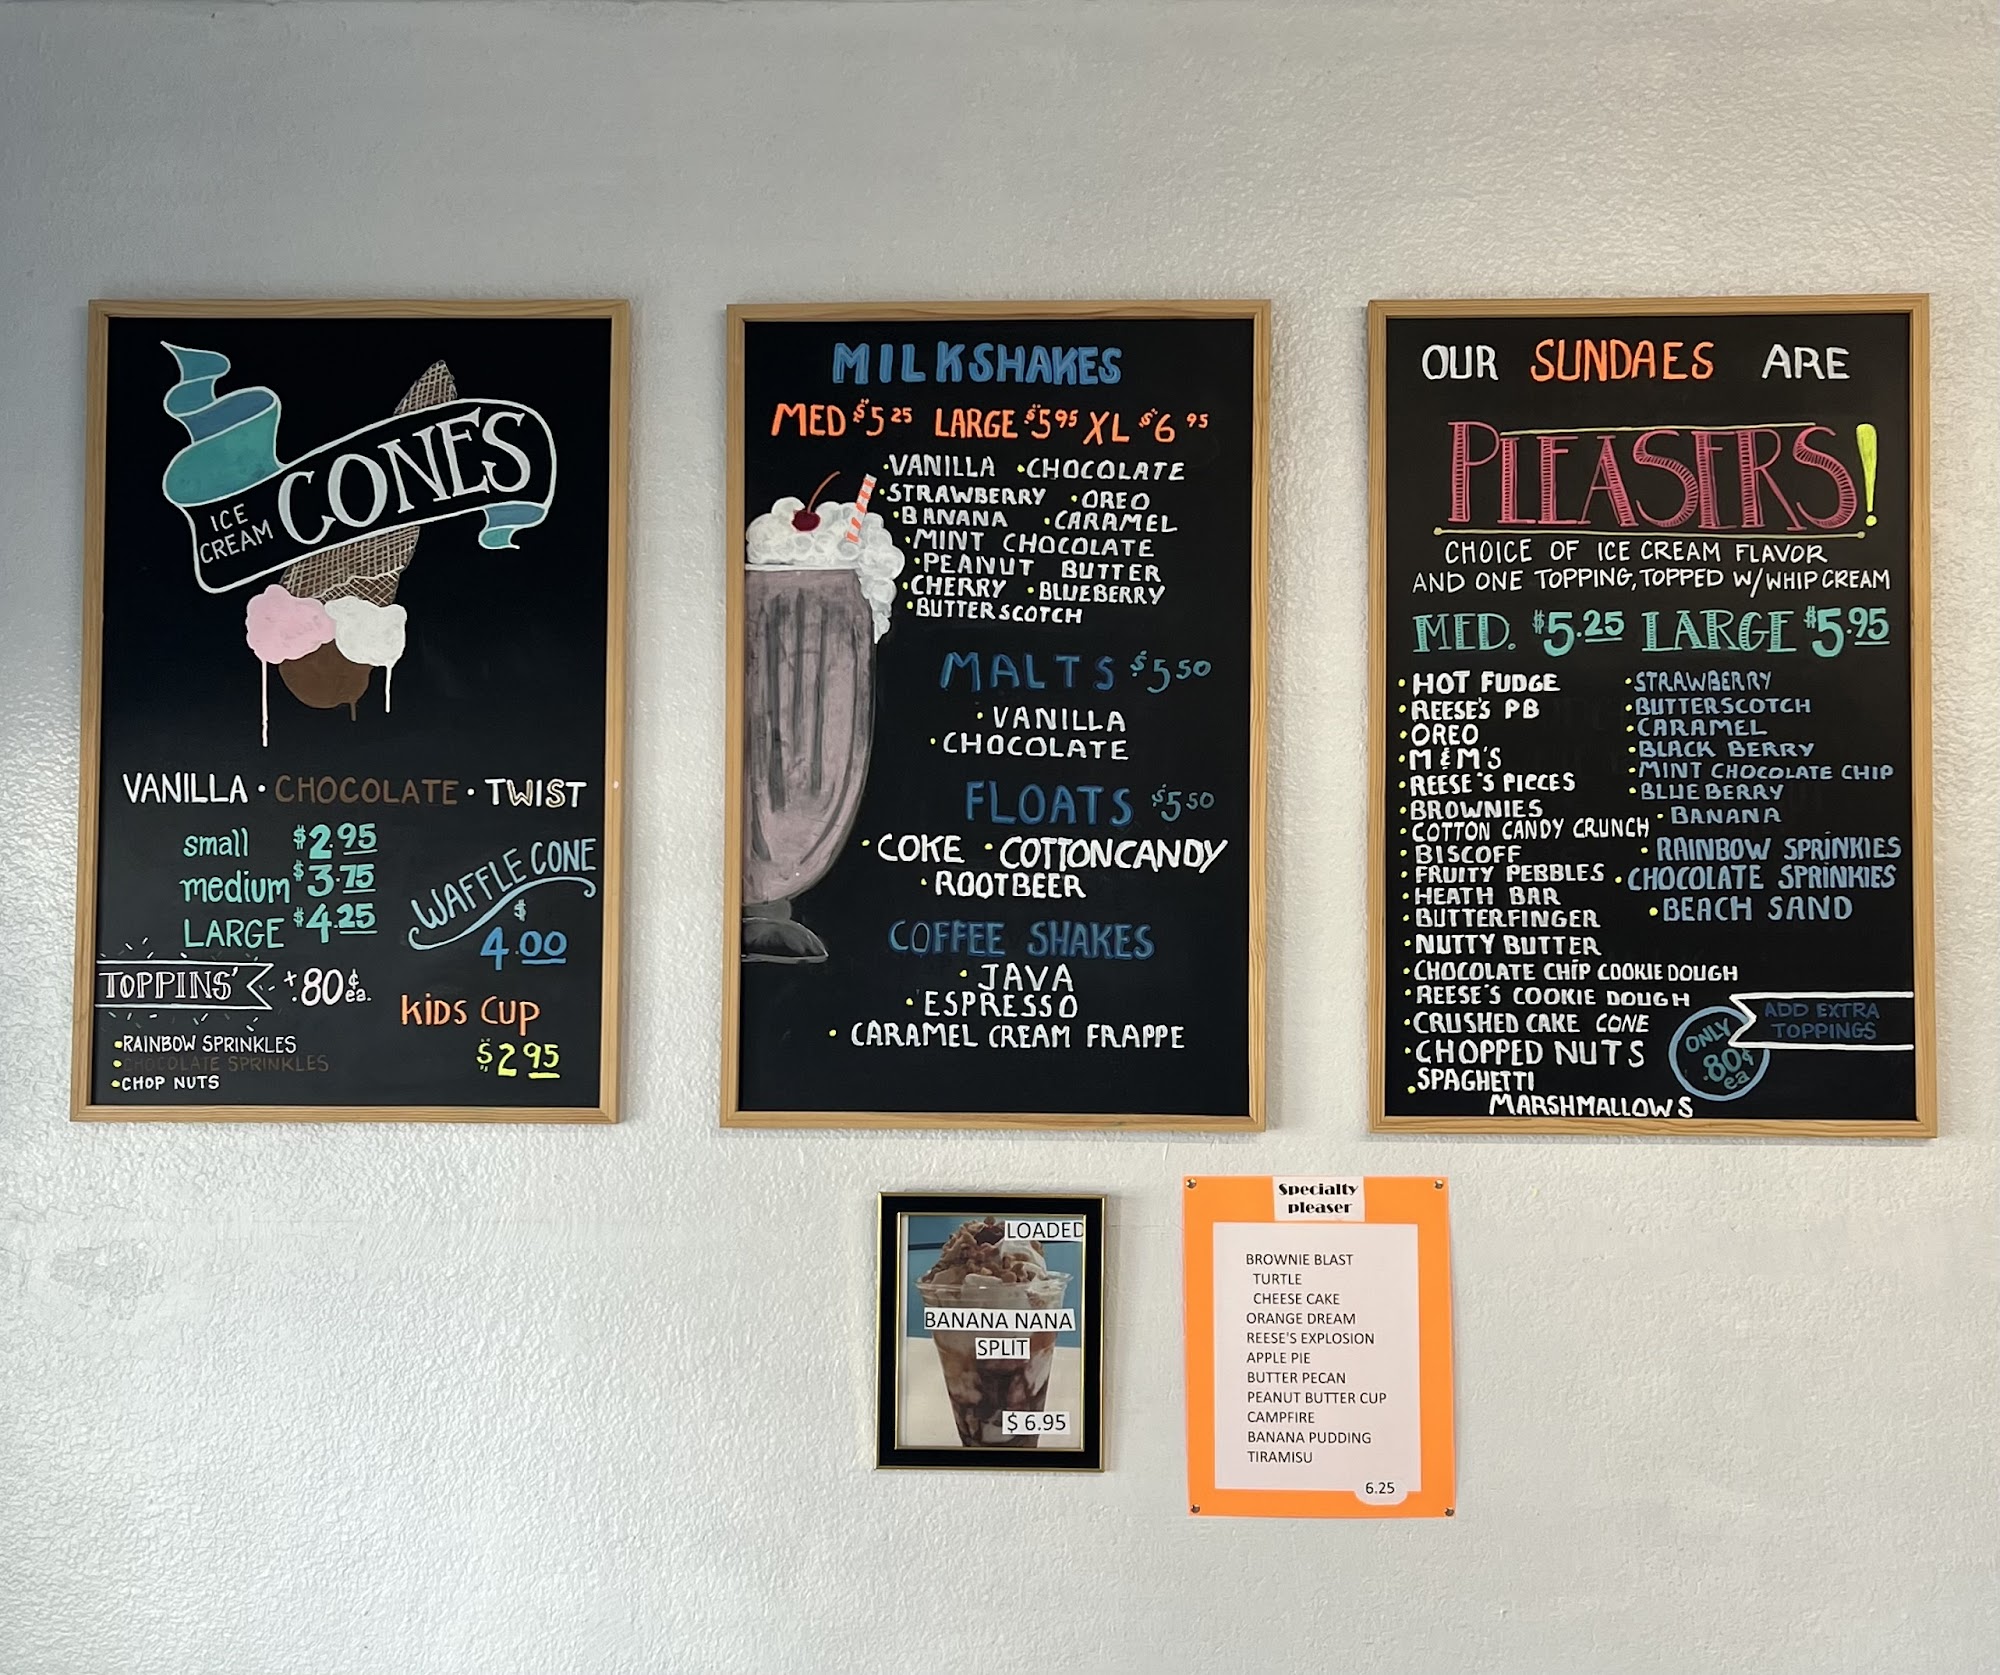 ICE
CREAM CONES
VANILLA · CHOCOLATE · TWIST
small $2.95
medium $3.75
LARGE $4.25
WAFFLE CONE
$
4.00
TOPPINS' +.80¢ ea.
KiDS CUP
$2.95
•RAINBOW SPRINKLES
•CHOCOLATE SPRINKLES
•CHOP NUTS
MILKSHAKES
MED $5 25 LARGE $5 95 XL $6 95
•VANILLA •CHOCOLATE
•STRAWBERRY •OREO
•BANANA •CARAMEL
•MINT CHOCOLATE
•PEANUT BUTTER
•CHERRY •BLUEBERRY
•BUTTERSCOTCH
MALTS $5 50
•VANILLA
•CHOCOLATE
FLOATS $5 50
•COKE •COTTON CANDY
•ROOTBEER
COFFEE SHAKES
•JAVA
•ESPRESSO
•CARAMEL CREAM FRAPPE
OUR SUNDAES ARE
PLEASERS!
CHOICE OF ICE CREAM FLAVOR
AND ONE TOPPING, TOPPED W/WHIP CREAM
MED. $5.25 LARGE $5.95
•HOT FUDGE
•REESE'S PB
•OREO
•M&M'S
•REESE'S PIECES
•BROWNIES
•COTTON CANDY CRUNCH
•BISCOFF
•FRUITY PEBBLES
•HEATH BAR
•BUTTERFINGER
•NUTTY BUTTER
•CHOCOLATE CHIP COOKIE DOUGH
•REESE'S COOKIE DOUGH
•CRUSHED CAKE CONE
•CHOPPED NUTS
•SPAGHETTI
MARSHMALLOWS
•STRAWBERRY
•BUTTERSCOTCH
•CARAMEL
•BLACK BERRY
•MINT CHOCOLATE CHIP
•BLUE BERRY
•BANANA
•RAINBOW SPRINKIES
•CHOCOLATE SPRINKIES
•BEACH SAND
ADD EXTRA
TOPPINGS
ONLY
.80¢
ea
LOADED
BANANA NANA
SPLIT
$ 6.95
Specialty
pleaser
BROWNIE BLAST
TURTLE
CHEESE CAKE
ORANGE DREAM
REESE'S EXPLOSION
APPLE PIE
BUTTER PECAN
PEANUT BUTTER CUP
CAMPFIRE
BANANA PUDDING
TIRAMISU
6.25